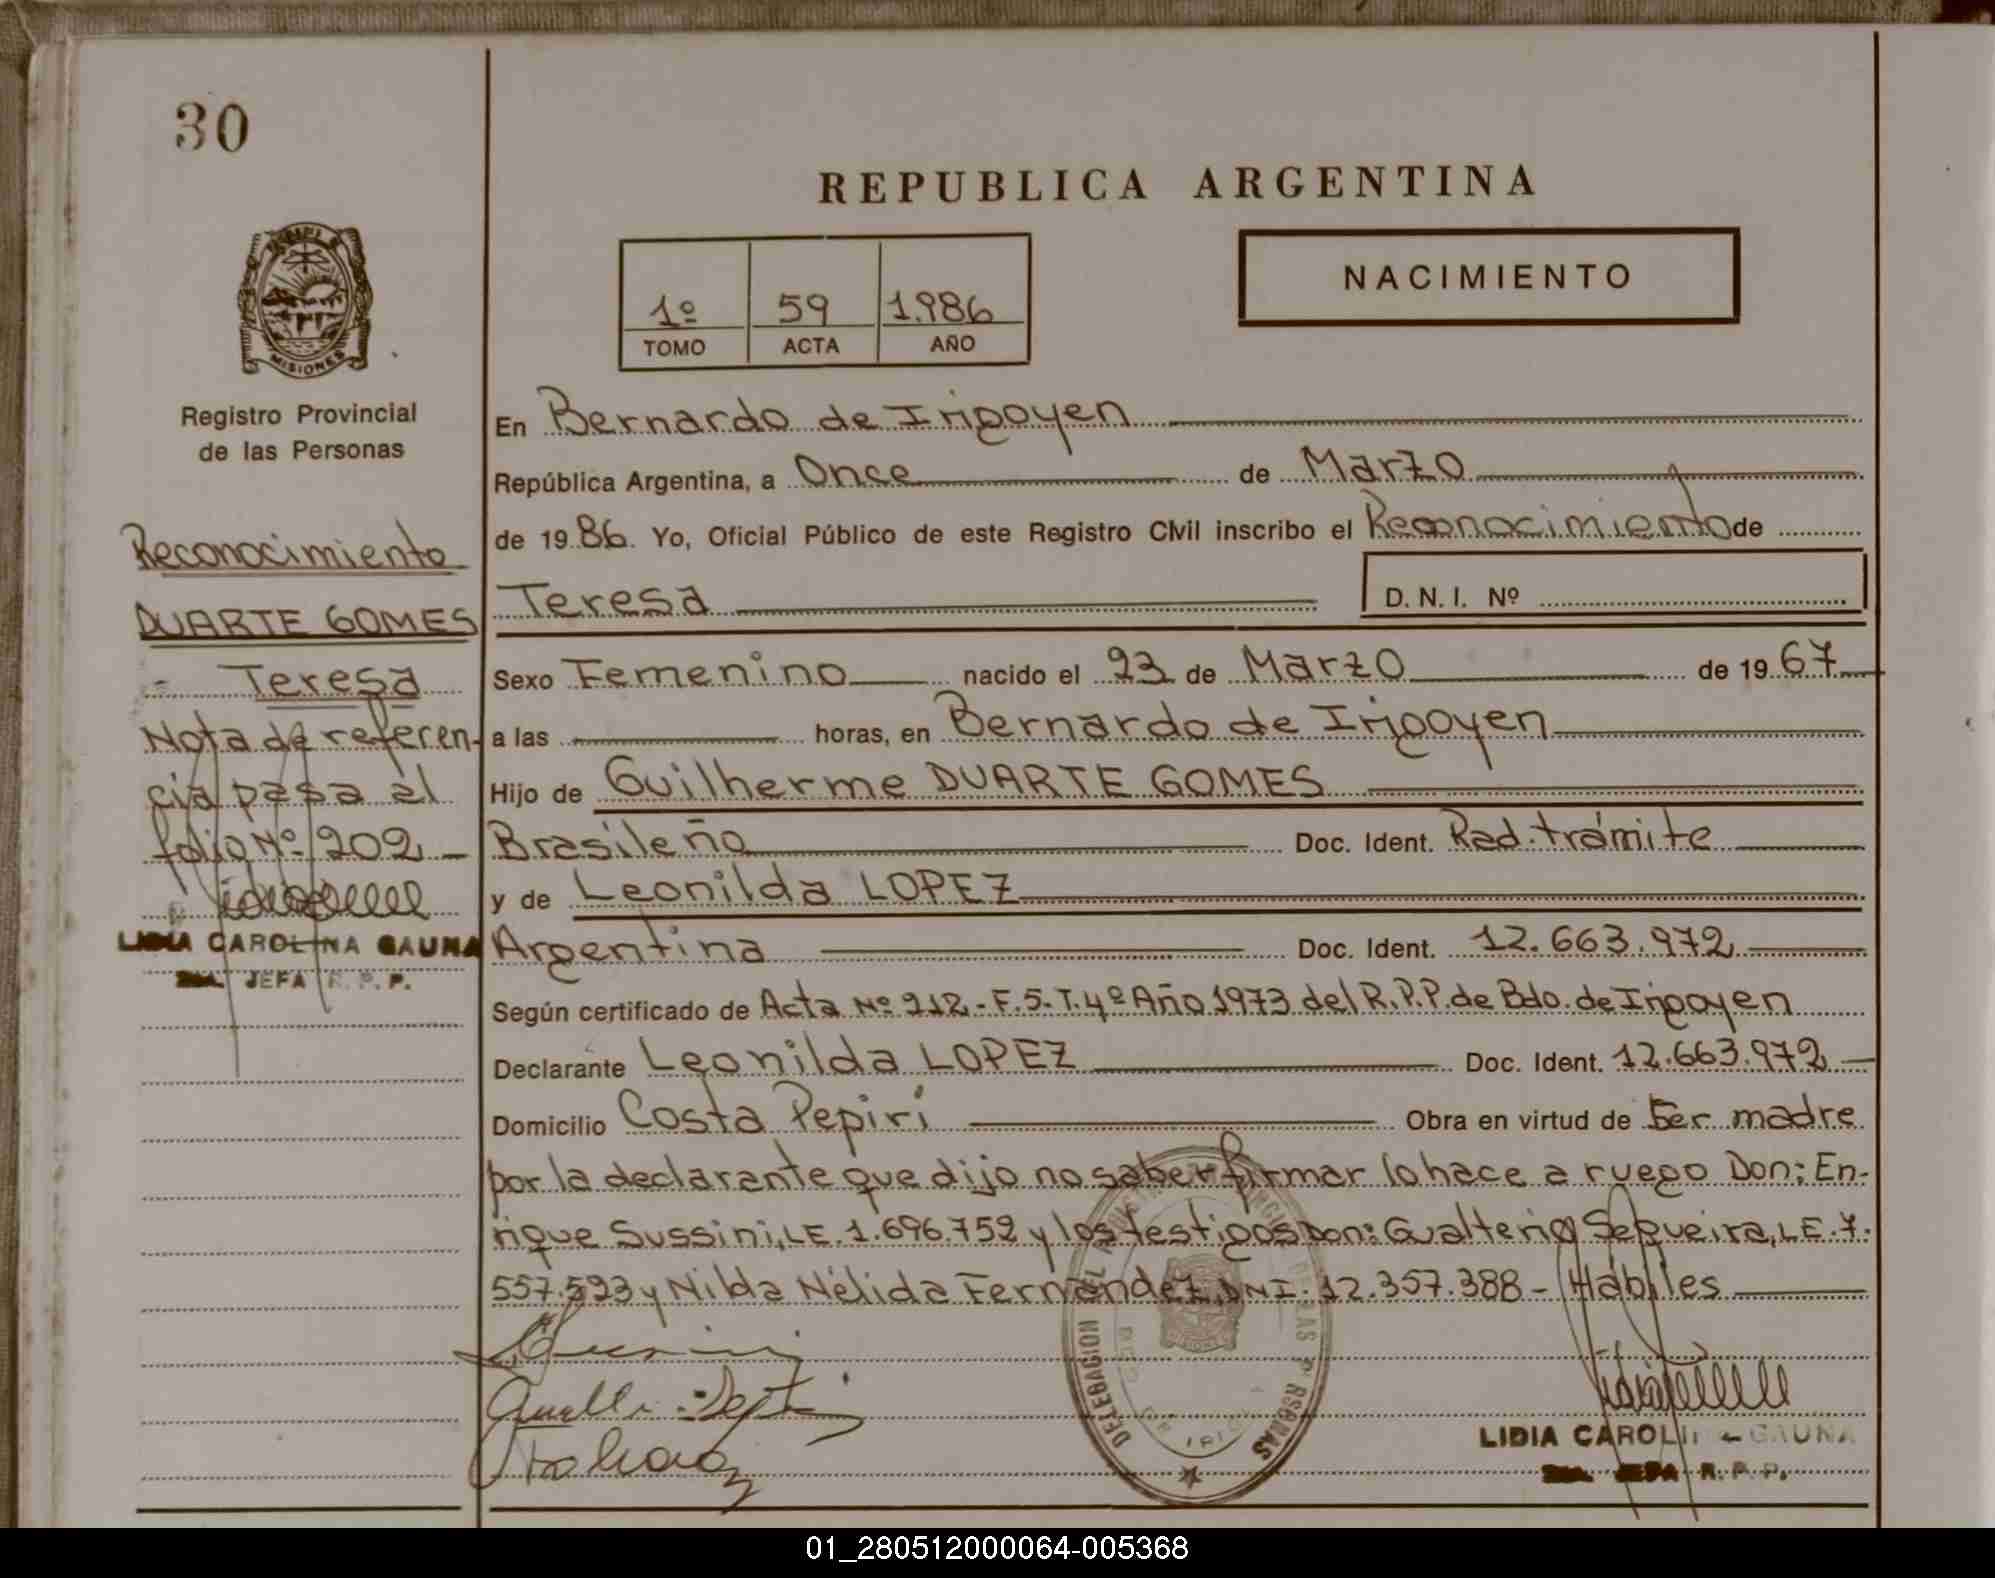 30
REPUBLICA ARGENTINA
MISIONES
Registro Provincial
de las Personas
1º 59 1.986
TOMO ACTA AÑO
NACIMIENTO
En Bernardo de Irigoyen
República Argentina, a Once de Marzo
de 19 86. Yo, Oficial Público de este Registro Civil inscribo el Reconocimiento de
Teresa D.N.I. Nº
Sexo Femenino nacido el 23 de Marzo de 19 67
a las horas, en Bernardo de Irigoyen
Hijo de Guilherme DUARTE GOMES
Brasileño Doc. Ident. Rad. trámite
y de Leonilda LOPEZ
Argentina Doc. Ident. 12.663.972
Según certificado de Acta Nº 212.- F.5- T.4º Año 1973 del R.P.P. de Bdo. de Irigoyen
Declarante Leonilda LOPEZ Doc. Ident. 12.663.972
Domicilio Costa Pepirí Obra en virtud de Ser madre
por la declarante que dijo no saber firmar lo hace a ruego Don: En-
rique Sussini, LE. 1.696.752 y los testigos Don: Gualterio Sequeira, LE. 7.
557.523 y Nilda Nélida Fernández, DNI. 12.357.388 - Hábiles
LIDIA CAROLINA GAUNA
JEFA R.P.P.
Reconocimiento
DUARTE GOMES
Teresa
Nota de referen-
cia pasa al
folio Nº 202
LIDIA CAROLINA GAUNA
JEFA R.P.P.
01_280512000064-005368